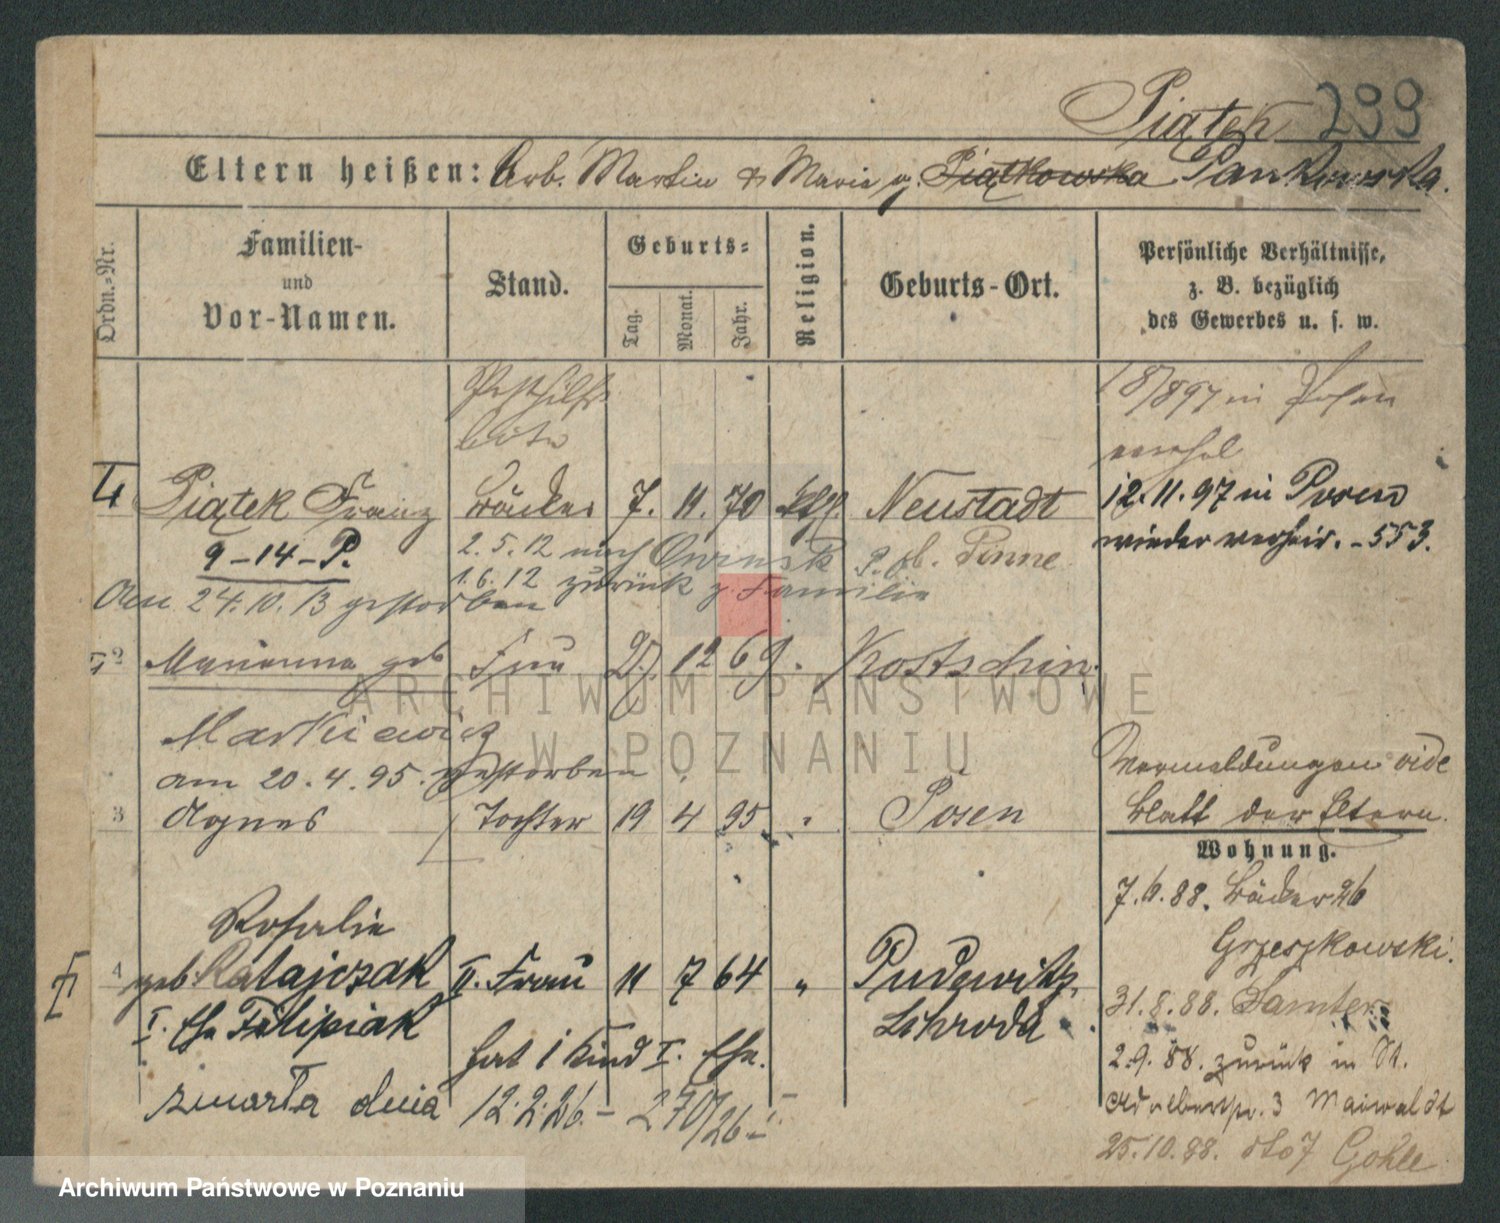 Piątek 299
Eltern heißen: Arb. Martin & Marie g. Piątkowska Pankowska.
Ordn.-Nr.
Familien- und Vor-Namen.
Stand.
Geburts-
Tag.
Monat.
Jahr.
Religion.
Geburts-Ort.
Persönliche Verhältnisse, z. B. bezüglich des Gewerbes u. s. w.
Posthilfs
bote
18/897 in Posen
Piątek Franz Bäcker 7. 11. 70 kth. Neustadt
12.11.97 in Posen
wieder verheir. - 553.
9-14-P.
2.5.12 nach Owinsk
P. Kr. Pinne
1.6.12 zurück z. Familie
Am 24.10.13 gestorben
2 Marianna geb Frau 12 69 Kostschin.
Markiewicz
am 20.4.95. gestorben
3 Agnes Tochter 19 4 95 " Posen
Vermeldungen vide
Blatt der Eltern.
Wohnung.
7.6.88. Bäckerstr. 26
Grzeszkowski.
Rosalie
4 geb Ratajczak II. Frau 11 7 64 " Pudewitz,
Schroda
I. Ehe Filipiak
hat 1 Kind I. Ehe.
31.8.88. Samter
2.9.88. zurück in St.
Adalbertstr. 3 Maiwaldt
zmarła dnia 12.2.26. - 270/26
25.10.88. dto 7 Gohle
ARCHIWUM PAŃSTWOWE
W POZNANIU
Archiwum Państwowe w Poznaniu